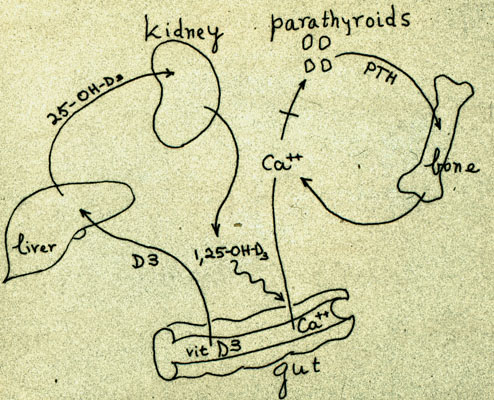 kidney
parathyroids
25-OH-D3
PTH
Ca++
bone
liver
D3
1,25-OH-D3
vit D3
Ca++
gut